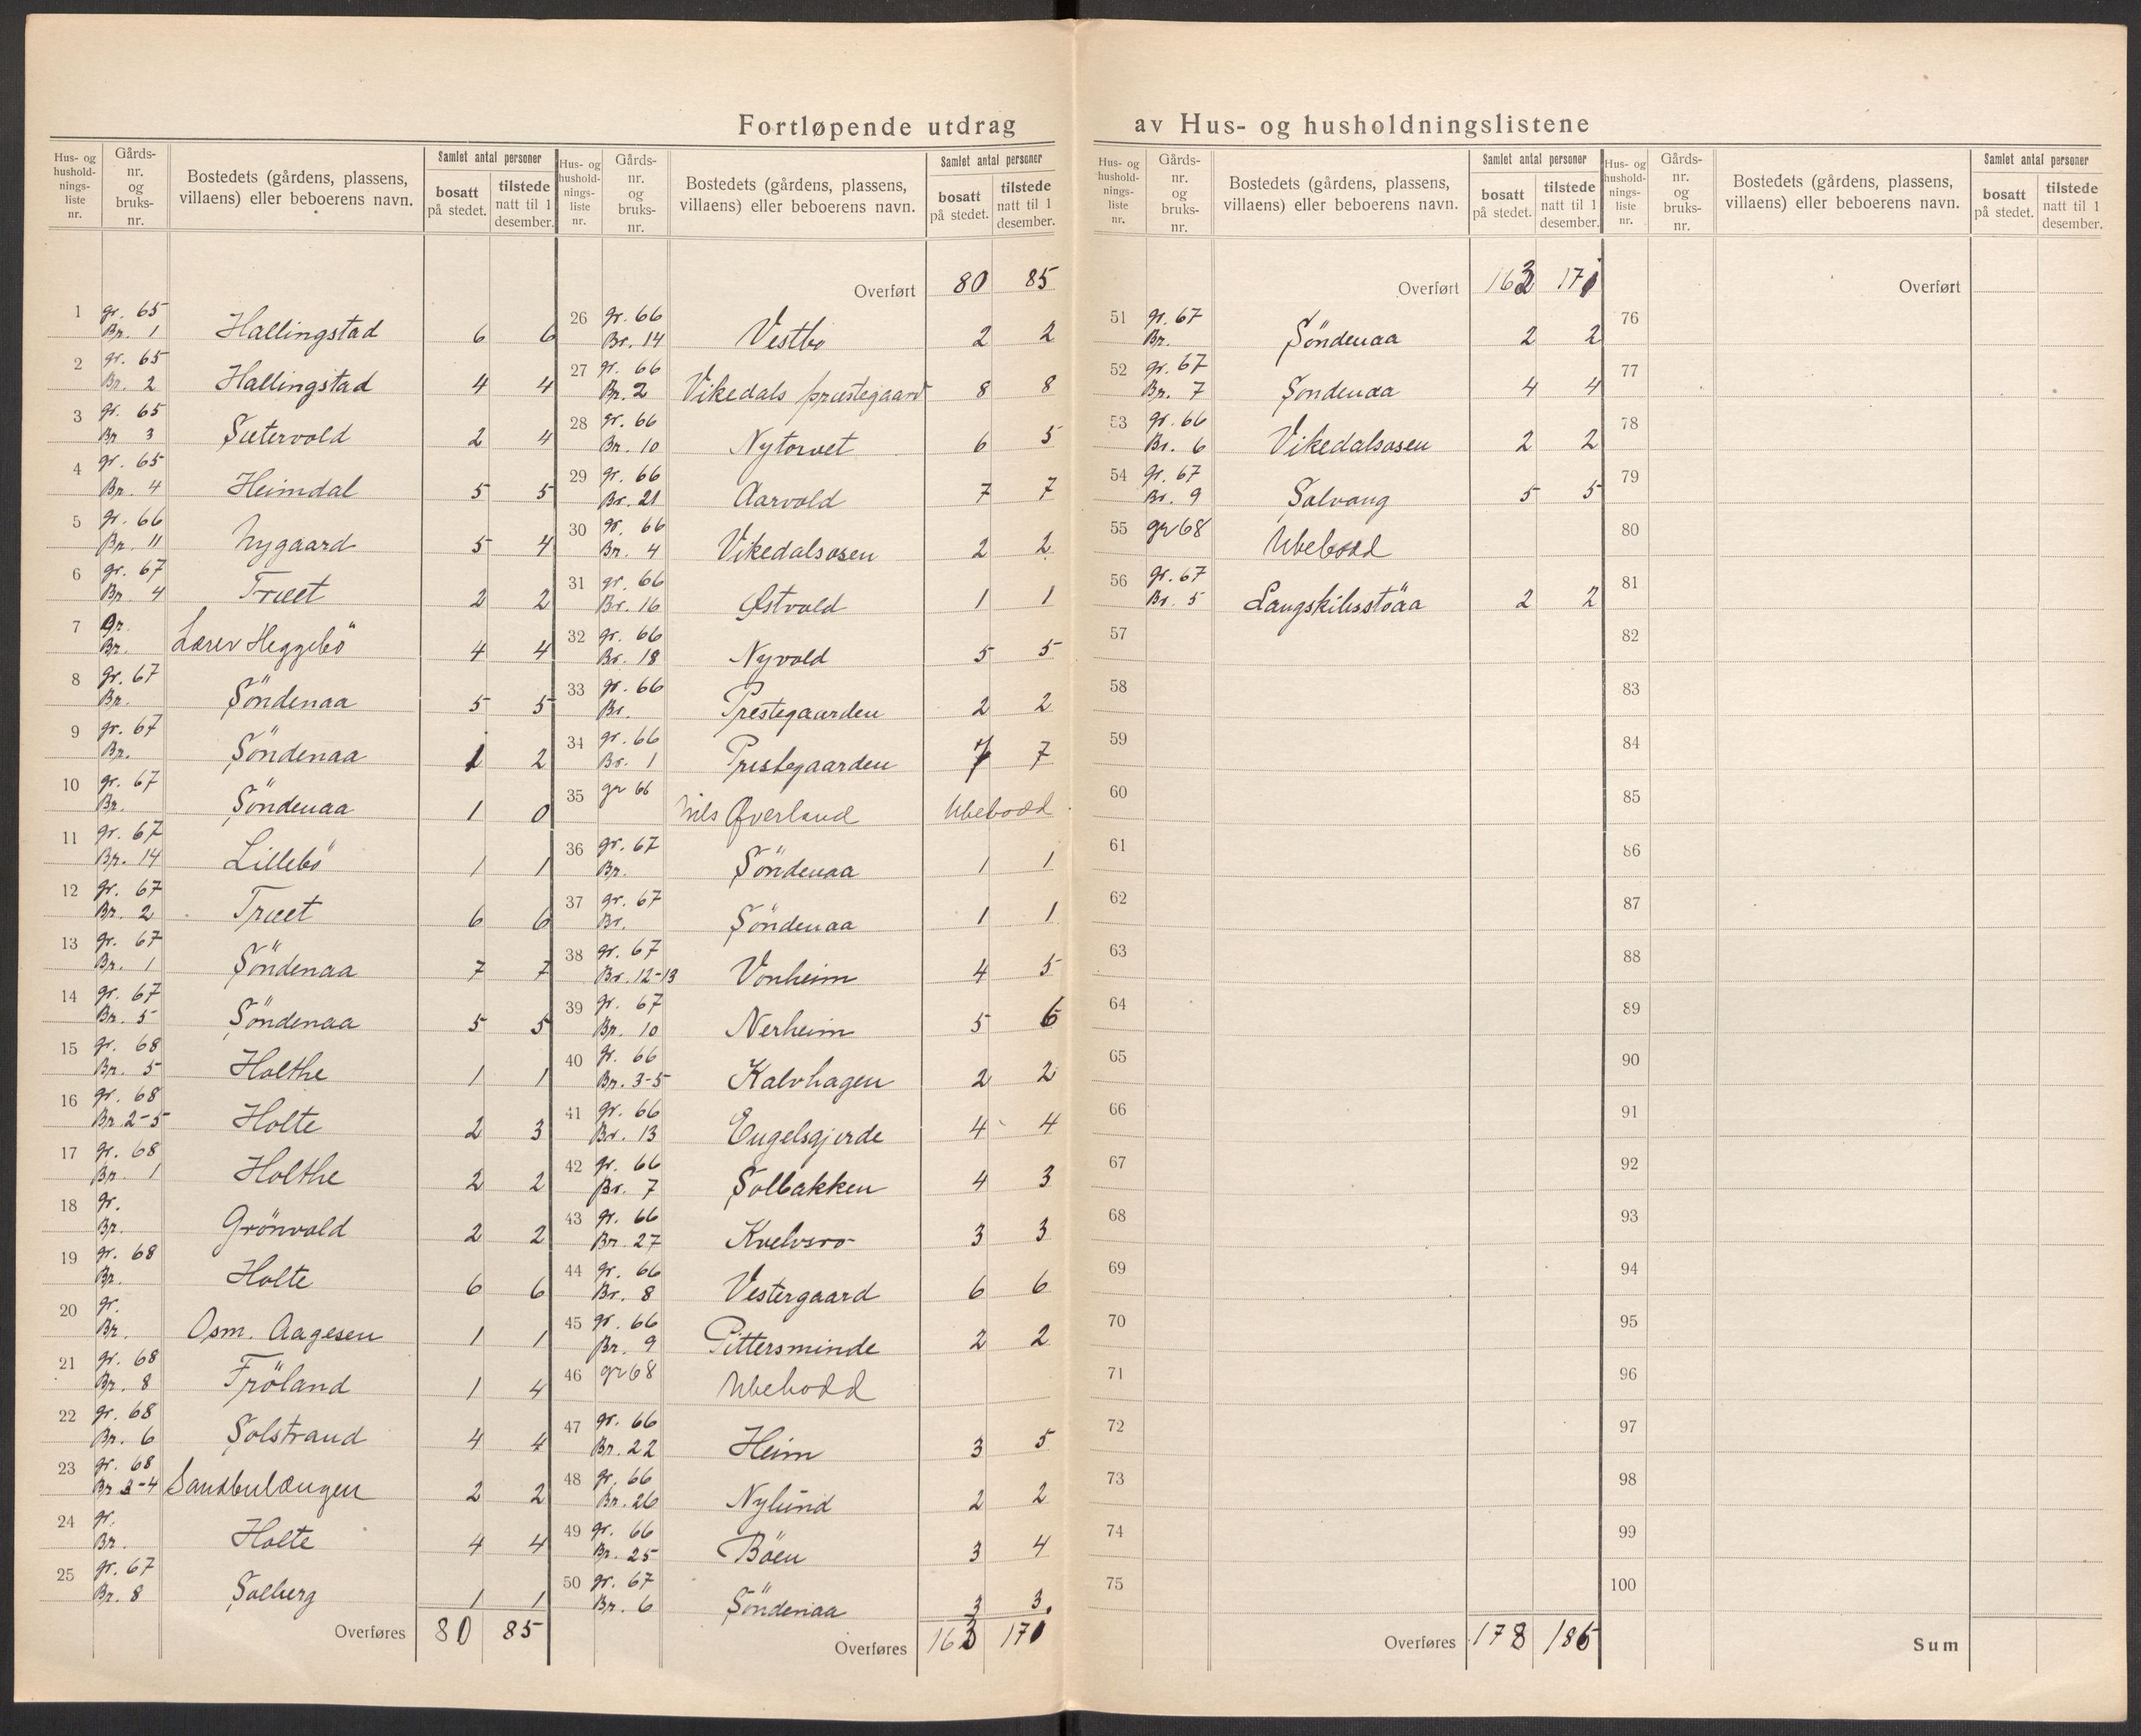 Fortløpende utdrag av Hus- og husholdningslistene
Hus- og hushold- nings- liste nr. | Gårds- nr. og bruks- nr. | Bostedets (gårdens, plassens, villaens) eller beboerens navn. | Samlet antal personer | bosatt på stedet. | tilstede natt til 1 desember.
1 | gr. 65 Br. 1 | Hallingstad | 6 | 6
2 | gr. 65 Br. 2 | Hallingstad | 4 | 4
3 | gr. 65 Br 3 | Sætervold | 2 | 4
4 | gr. 65 Br. 4 | Heimdal | 5 | 5
5 | gr. 66 Br. 11 | Nygaard | 5 | 4
6 | gr. 67 Br 4 | Træet | 2 | 2
7 | gr. Br. | Lærer Heggebö | 4 | 4
8 | gr. 67 Br. | Söndenaa | 5 | 5
9 | gr. 67 Br. | Söndenaa | 1 | 2
10 | gr. 67 Br. | Söndenaa | 1 | 0
11 | gr. 67 Br. 14 | Lillebö | 1 | 1
12 | gr. 67 Br. 2 | Træet | 6 | 6
13 | gr. 67 Br. 1 | Söndenaa | 7 | 7
14 | gr. 67 Br. 5 | Söndenaa | 5 | 5
15 | gr. 68 Br. 5 | Holthe | 1 | 1
16 | gr. 68 Br. 2-5 | Holte | 2 | 3
17 | gr. 68 Br. 1 | Holthe | 2 | 2
18 | gr. Br. | Grönvold | 2 | 2
19 | gr. 68 Br. | Holte | 6 | 6
20 | gr. Br. | Osm. Aagesen | 1 | 1
21 | gr. 68 Br. 8 | Fröland | 1 | 4
22 | gr. 68 Br. 6 | Solstrand | 4 | 4
23 | gr. 68 Br 3-4 | Sandbulængen | 2 | 2
24 | gr. Br. | Holte | 4 | 4
25 | gr. 67 Br. 8 | Solberg | 1 | 1
Overføres 80 85
Hus- og hushold- nings- liste nr. | Gårds- nr. og bruks- nr. | Bostedets (gårdens, plassens, villaens) eller beboerens navn. | Samlet antal personer | bosatt på stedet. | tilstede natt til 1 desember.
Overført 80 85
26 | gr. 66 Br. 14 | Vestbo | 2 | 2
27 | gr. 66 Br. 2 | Vikedals præstegaard | 8 | 8
28 | gr. 66 Br. 10 | Nytorvet | 6 | 5
29 | gr. 66 Br. 21 | Aarvold | 7 | 7
30 | gr. 66 Br. 4 | Vikedalsosen | 2 | 2
31 | gr. 66 Br. 16 | Østvold | 1 | 1
32 | gr. 66 Br. 18 | Nyvold | 5 | 5
33 | gr. 66 Br. | Prestegaarden | 2 | 2
34 | gr. 66 Br. 1 | Prestegaarden | 7 | 7
35 | gr 66 | Nils Øverland | Ubebodd
36 | gr. 67 Br. | Söndenaa | 1 | 1
37 | gr. 67 Br. | Söndenaa | 1 | 1
38 | gr. 67 Br. 12-13 | Vonheim | 4 | 5
39 | gr. 67 Br. 10 | Nerheim | 5 | 6
40 | gr. 66 Br. 3-5 | Kalvhagen | 2 | 2
41 | gr. 66 Br. 13 | Engelsgjerde | 4 | 4
42 | gr. 66 Br. 7 | Solbakken | 4 | 3
43 | gr. 66 Br. 27 | Kvelvsro | 3 | 3
44 | gr. 66 Br. 8 | Vestergaard | 6 | 6
45 | gr. 66 Br. 9 | Pittersminde | 2 | 2
46 | gr 68 | Ubebodd
47 | gr. 66 Br. 22 | Heim | 3 | 5
48 | gr. 66 Br. 26 | Nylund | 2 | 2
49 | gr. 66 Br. 25 | Böen | 3 | 4
50 | gr. 67 Br. 6 | Söndenaa | 3 | 3
Overføres 163 171
Hus- og hushold- nings- liste nr. | Gårds- nr. og bruks- nr. | Bostedets (gårdens, plassens, villaens) eller beboerens navn. | Samlet antal personer | bosatt på stedet. | tilstede natt til 1 desember.
Overført 163 171
51 | gr. 67 Br. | Söndenaa | 2 | 2
52 | gr. 67 Br. 7 | Söndenaa | 4 | 4
53 | gr. 66 Br. 6 | Vikedalsosen | 2 | 2
54 | gr. 67 Br. 9 | Solvang | 5 | 5
55 | gr 68 | Ubebodd
56 | gr. 67 Br. 5 | Langskibsstöaa | 2 | 2
57
58
59
60
61
62
63
64
65
66
67
68
69
70
71
72
73
74
75
Overføres 178 186
Hus- og hushold- nings- liste nr. | Gårds- nr. og bruks- nr. | Bostedets (gårdens, plassens, villaens) eller beboerens navn. | Samlet antal personer | bosatt på stedet. | tilstede natt til 1 desember.
Overført
76
77
78
79
80
81
82
83
84
85
86
87
88
89
90
91
92
93
94
95
96
97
98
99
100
Sum